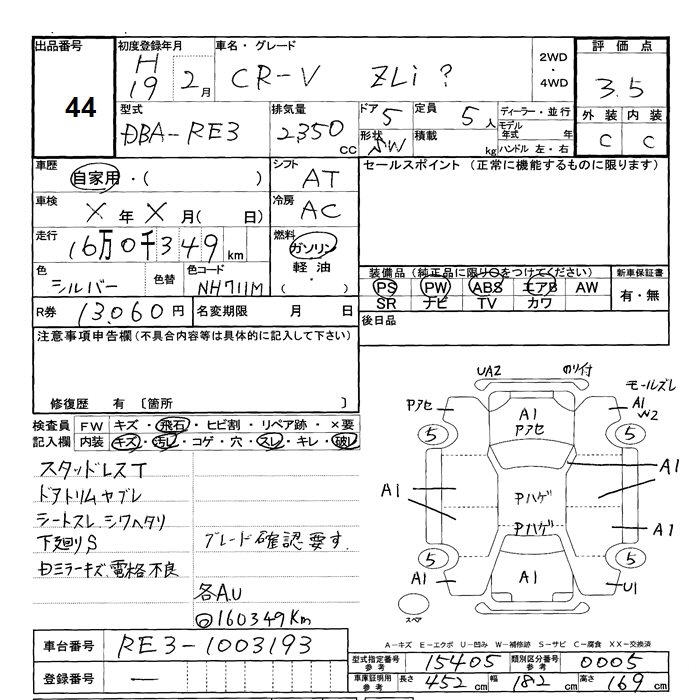 出品番号
44
初度登録年月
H
19 2月
車名・グレード
CR-V ZLi ?
2WD
・
4WD
評価点
3.5
型式
DBA-RE3
排気量
2350 CC
ドア 5
定員 5人
ディーラー・並行
モデル年式 年
ハンドル 左・右
形状 SW
積載 kg
外装 内装
C C
車歴
自家用・( )
シフト AT
車検
X年X月( 日)
冷房 AC
走行
16万0千349 km
燃料
ガソリン
軽油
・
( )
色
シルバー
色替
色コード
NH711M
R券 13,060円
名変期限 月 日
セールスポイント (正常に機能するものに限ります)
装備品(純正品に限り○をつけてください)
PS PW ABS エアB AW
SR ナビ TV カワ
新車保証書
有・無
後日品
注意事項申告欄(不具合内容等は具体的に記入して下さい)
修復歴 有 〔箇所
検査員
記入欄
FW キズ・飛石・ヒビ割・リペア跡・×要
内装 キズ・汚レ・コゲ・穴・スレ・キレ・破レ
スタッドレスT
ドアトリムヤブレ
シートスレ、シワヘタリ
下廻りS
グレード確認要す.
ミラーキズ、電格不良
各A.U
160349Km
UA2
のり付
モールズレ
Pアセ
A1
W2
A1
Pアセ
5
5
A1
A1
Pハゲ
Pハゲ
A1
5
5
A1
A1
U1
スペア
A－キズ E－エクボ U－凹み W－補修跡 S－サビ C－腐食 XX－交換済
車台番号 RE3-1003193
登録番号 —
型式指定番号
参考
15405
類別区分番号
参考
0005
車庫証明用
参考
長さ 452cm
幅 182cm
高さ 169cm